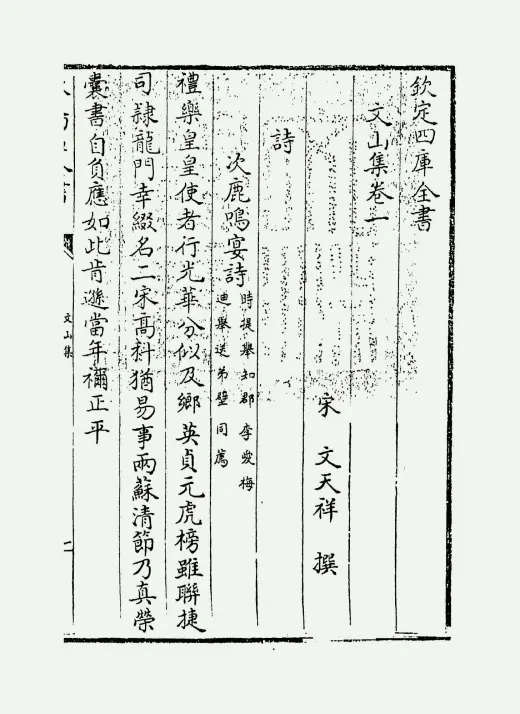 欽定四庫全書
文山集卷一
宋 文天祥 撰
詩
次鹿鳴宴詩
時提舉知郡李愛梅
迪舉送弟璧同薦
禮樂皇皇使者行光華分似及鄉英貞元虎榜雖聯捷
司隸龍門幸綴名二宋髙科猶易事兩蘇清節乃真榮
囊書自負應如此肯遜當年禰正平
文山集